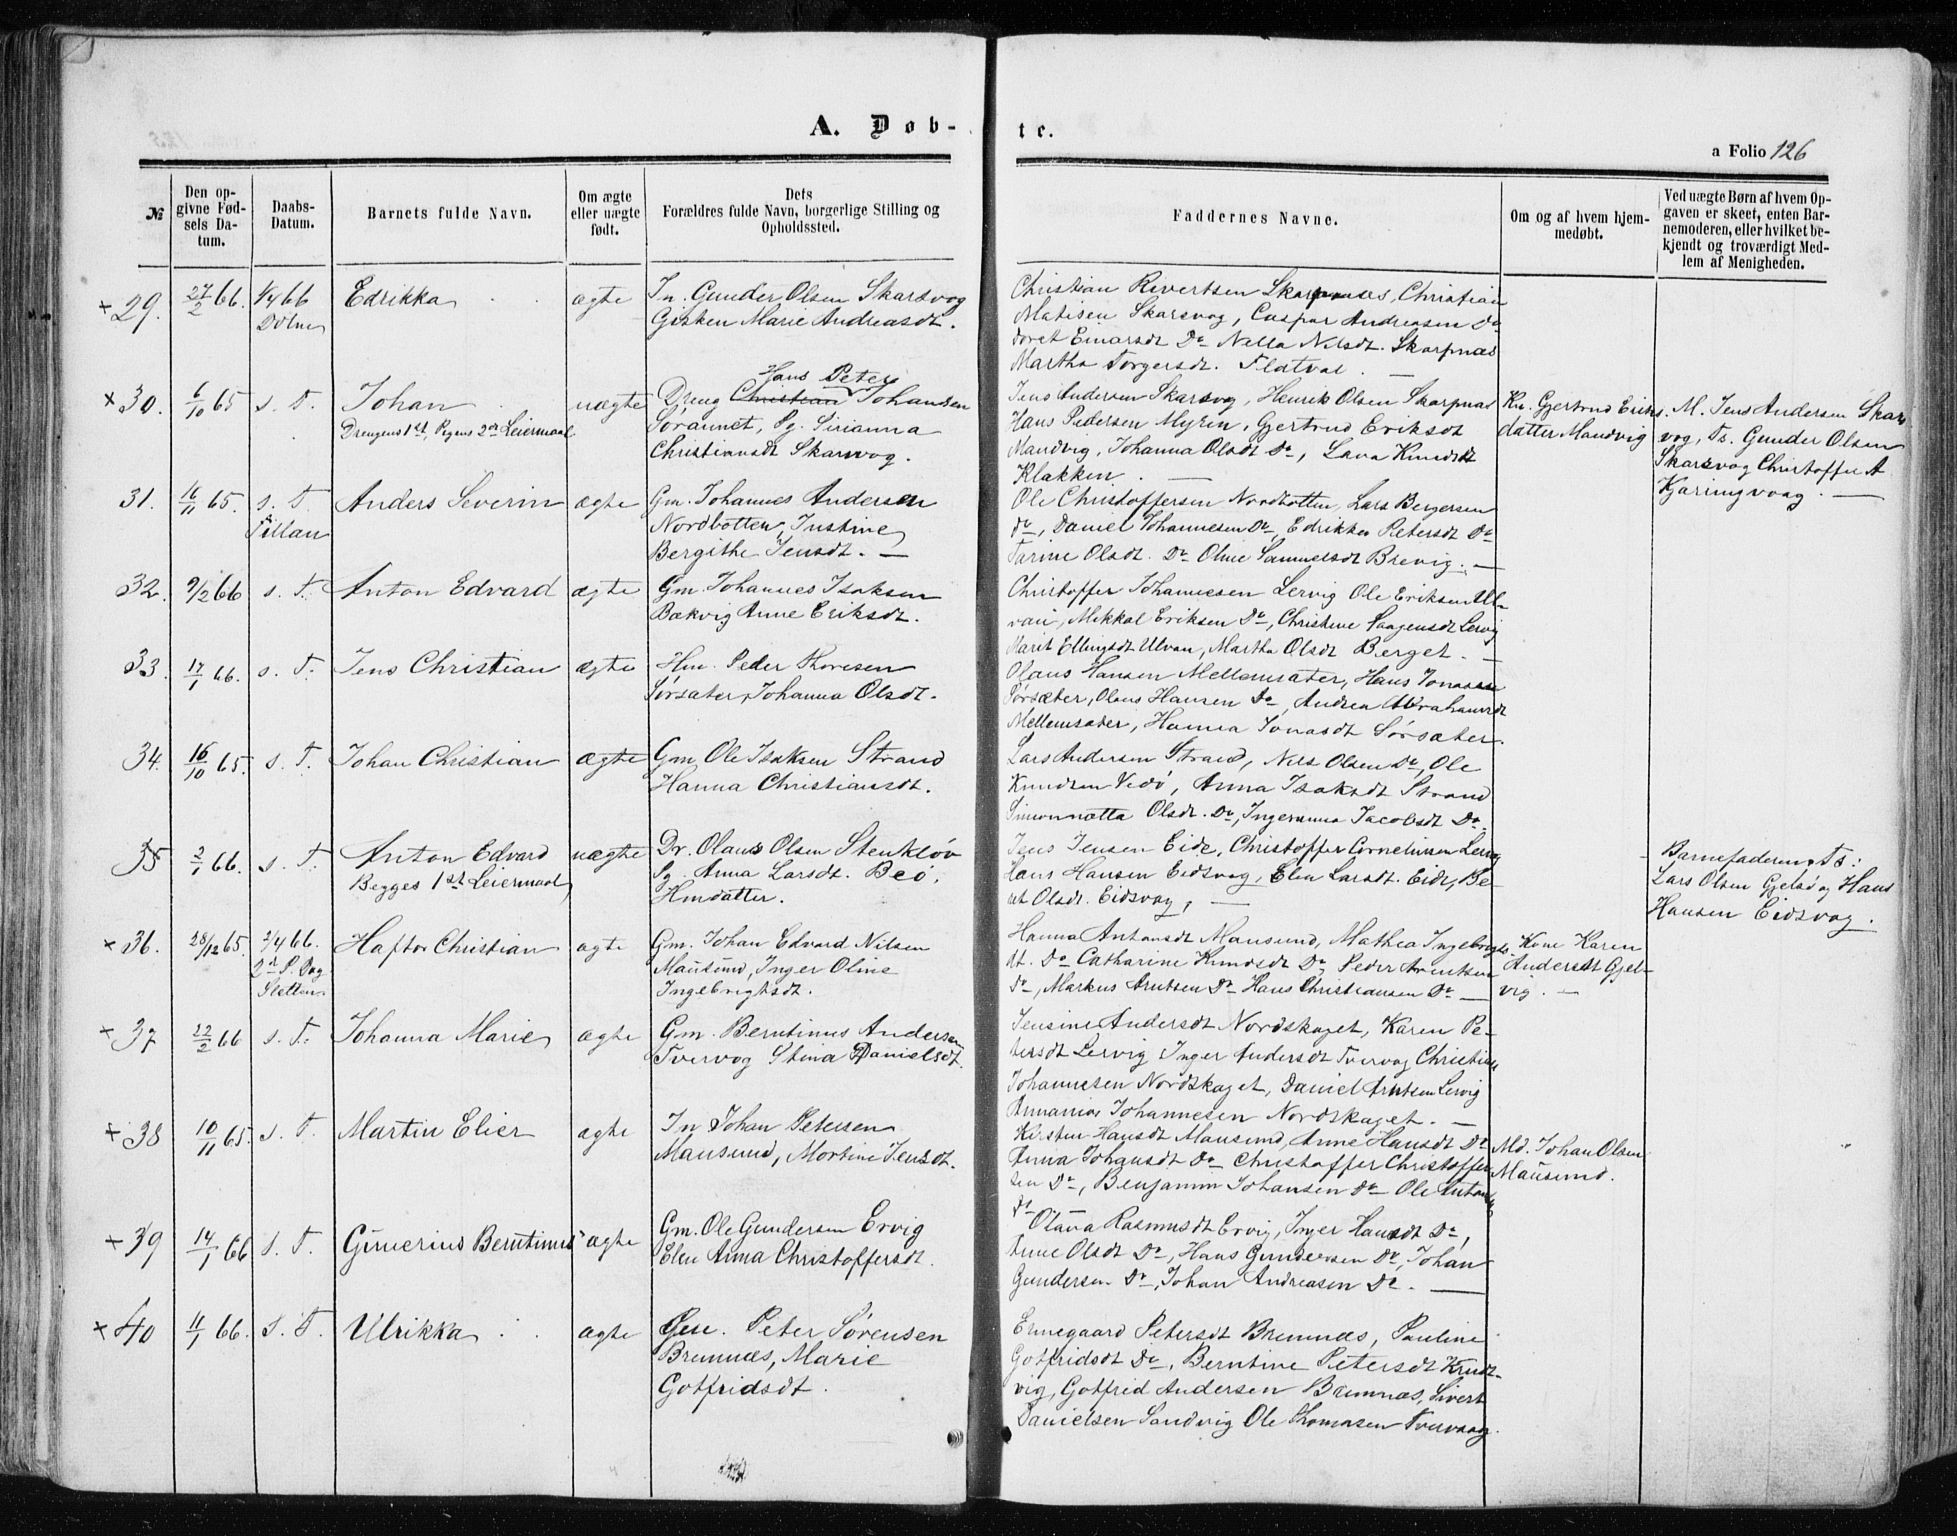 A. Døb-
te.
a Folio 126
№
Den op-
givne Fød-
sels Da-
tum.
Daabs-
Datum.
Barnets fulde Navn.
Om ægte
eller uægte
født.
Dets
Forældres fulde Navn, borgerlige Stilling og
Opholdssted.
Faddernes Navne.
Om og af hvem hjem-
medøbt.
Ved uægte Børn af hvem Op-
gaven er skeet, enten Bar-
nemoderen, eller hvilket be-
kjendt og troværdigt Med-
lem af Menigheden.
+ 29. 27/2 66. 1/4 66 Edrikka ægte In. Gunder Olsen Skarsvog
Dolme Gisken Marie Andreasdt.
Christian Rivertsen Skarpnæs, Christian
Matisen Skarsvog, Caspar Andreasen Do
Doret Einarsdt Do Nella Nilsdt. Skarpnæs
Martha Torgersdt. Flatval.
Hans Peter
× 30. 6/10 65 s. T. Johan uægte Dreng Christian Johansen
Drengens 1st, Pigens 2den Leiermaal Søraunet, Pg. Sirianna
Christiansdt Skarsvog.
Jens Andersen Skarsvog, Henrik Olsen Skarpnæs
Hans Pedersen Myren, Gjertrud Eriksdt
Mandvig, Johanna Olsdt Do, Lava Knudsdt
Klakken.
Kn. Gjertrud Eriks-
datter Mandvig
M. Jens Andersen Skars-
vog, Ts. Gunder Olsen
Skarsvog Christoffer A
Kjæringvaag.
31. 16/11 65. s. T. Anders Severin ægte Gm. Johannes Andersen
Tillan Nordbotten, Justine
Bergithe Jensdt.
Ole Christoffersen Nordbotten, Lars Bergersen
do, Daniel Johannesen Do, Edrikka Petersdt Do
Tarine Olsdt. Do Oline Samuelsdt Brevig.
32. 9/2 66 s. T. Anton Edvard ægte Gm. Johannes Isaksen
Bækvig Anne Eriksdt.
Christoffer Johannesen Lervig Ole Eriksen Ul-
van, Mikkal Eriksen Do, Christine Paagensdt Lervig
Marit Ellingsdt Ulvan, Martha Olsdt Berget.
33. 17/1 66. s. T. Jens Christian ægte Hm. Peder Thoresen
Sørsæter, Johanna Olsdt.
Olaus Hansen Mellemsæter, Hans Jonassen
Sørsæter, Olaus Hansen Do, Andrea Abrahamsdt
Mellemsæter, Hanna Jonasdt Sørsæter.
34. 16/10 65. s. T. Johan Christian ægte Gm. Ole Isaksen Strand
Hanna Christiansdt.
Lars Andersen Strand, Nils Olsen Do, Ole
Knudsen Vedø, Anna Isaksdt Strand
Simonnætta Olsdt. Do, Ingeranna Jacobsdt Do.
35 2/1 66. s. T. Anton Edvard uægte Dr. Olaus Olsen Stenkløv
Begges 1st Leiermaal Pg. Anna Larsdt. Beø,
Hmdatter.
Jens Jensen Eide, Christoffer Corneliusen Lervig
Hans Hansen Eidsvag, Elen Larsdt. Eide, Be-
ret Olsdt. Eidsvag,
Barnefaderen, Ts:
Lars Olsen Gjelsø og Hans
Hansen Eidsvag.
× 36. 28/12 65. 2/4 66. Haftor Christian ægte Gm. Johan Edvard Nilsen
2den P. Dag Mausund, Inger Oline
Sletten. Ingebrigtsdt.
Hanna Antonsdt Mausund, Mathea Ingebrigts-
dt. Do Catharine Knudsdt Do, Peder Arentsen
Do, Markus Arntsen Do Hans Christiansen Do
Kone Karen
Andersdt Gjel-
vig.
+ 37 22/2 66 s. T. Johanna Marie ægte Gm. Berntinus Andersen
Tvervog Stina Danielsdt.
Jensine Andersdt Nordskaget, Karen Pe-
tersdt Lervig Inger Andersdt Tvervog Christian
Johannesen Nordskaget, Daniel Arntsen Lervig
Annanias Johannesen Nordskaget.
+ 38 10/11 65. s. T. Martin Elier ægte In Johan Petersen
Mausund, Mortine Jensdt.
Kirsten Hansdt Mausund, Anne Hansdt Do
Anna Johansdt Do Christoffer Christoffer-
sen Do, Benjamin Johansen Do Ole Antonsen
Do
Md. Johan Olsen
Mausund.
+ 39 14/1 66 s. T. Gunerius Berntinus ægte Gm. Ole Gundersen Ervig
Elen Anna Christoffersdt.
Olava Rasmusdt Ervig, Inger Hansdt Do,
Anne Olsdt Do, Hans Gundersen Do, Johan
Gundersen Do, Johan Andreasen Do.
× 40 11/1 66. s. T. Ulrikka ægte Gm. Peter Sørensen
Bremnæs, Marie
Gotfridsdt.
Ennegaard Petersdt Bremnæs, Pauline
Gotfridsdt Do, Berntine Petersdt Knut-
vig, Gotfrid Andersen Bremnæs, Sivert
Danielsen Sandvig Ole Thomasen Tvervaag.